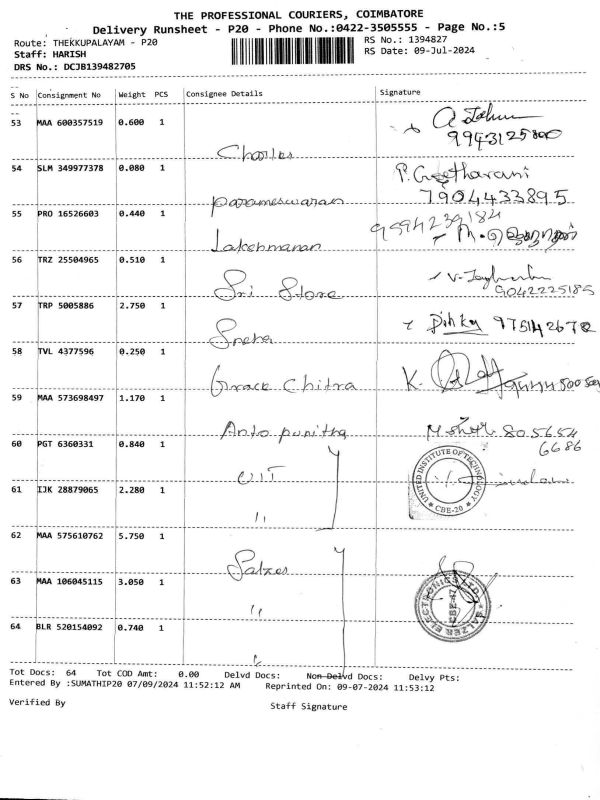 THE PROFESSIONAL COURIERS, COIMBATORE
Delivery Runsheet - P20 - Phone No.:0422-3505555 - Page No.:5
Route: THEKKUPALAYAM - P20
RS No.: 1394827
Staff: HARISH
RS Date: 09-Jul-2024
DRS No.: DCJB139482705
S No Consignment No Weight PCS Consignee Details Signature
53 MAA 600357519 0.600 1
9943125800
Charles
54 SLM 349977378 0.080 1 P. Geetharani
7904433895
Parameswaran
55 PRO 16526603 0.440 1 9594239184
Lakshmanan
56 TRZ 25504965 0.510 1
Sri Store 9042225185
57 TRP 5005886 2.750 1
Sneha 975142672
58 TVL 4377596 0.250 1
Grace Chitra K.
59 MAA 573698497 1.170 1
Anto punitha 805654
6686
60 PGT 6360331 0.840 1
UIT
UNITED INSTITUTE OF TECHNOLOGY
* CBE-20 *
61 IJK 28879065 2.280 1
"
62 MAA 575610762 5.750 1
Salzer
63 MAA 106045115 3.050 1
"
SALZER ELECTRONICS LTD.
CBE-47
64 BLR 520154092 0.740 1
Tot Docs: 64 Tot COD Amt: 0.00 Delvd Docs: Non Delvd Docs: Delvy Pts:
Entered By :SUMATHIP20 07/09/2024 11:52:12 AM Reprinted On: 09-07-2024 11:53:12
Verified By
Staff Signature